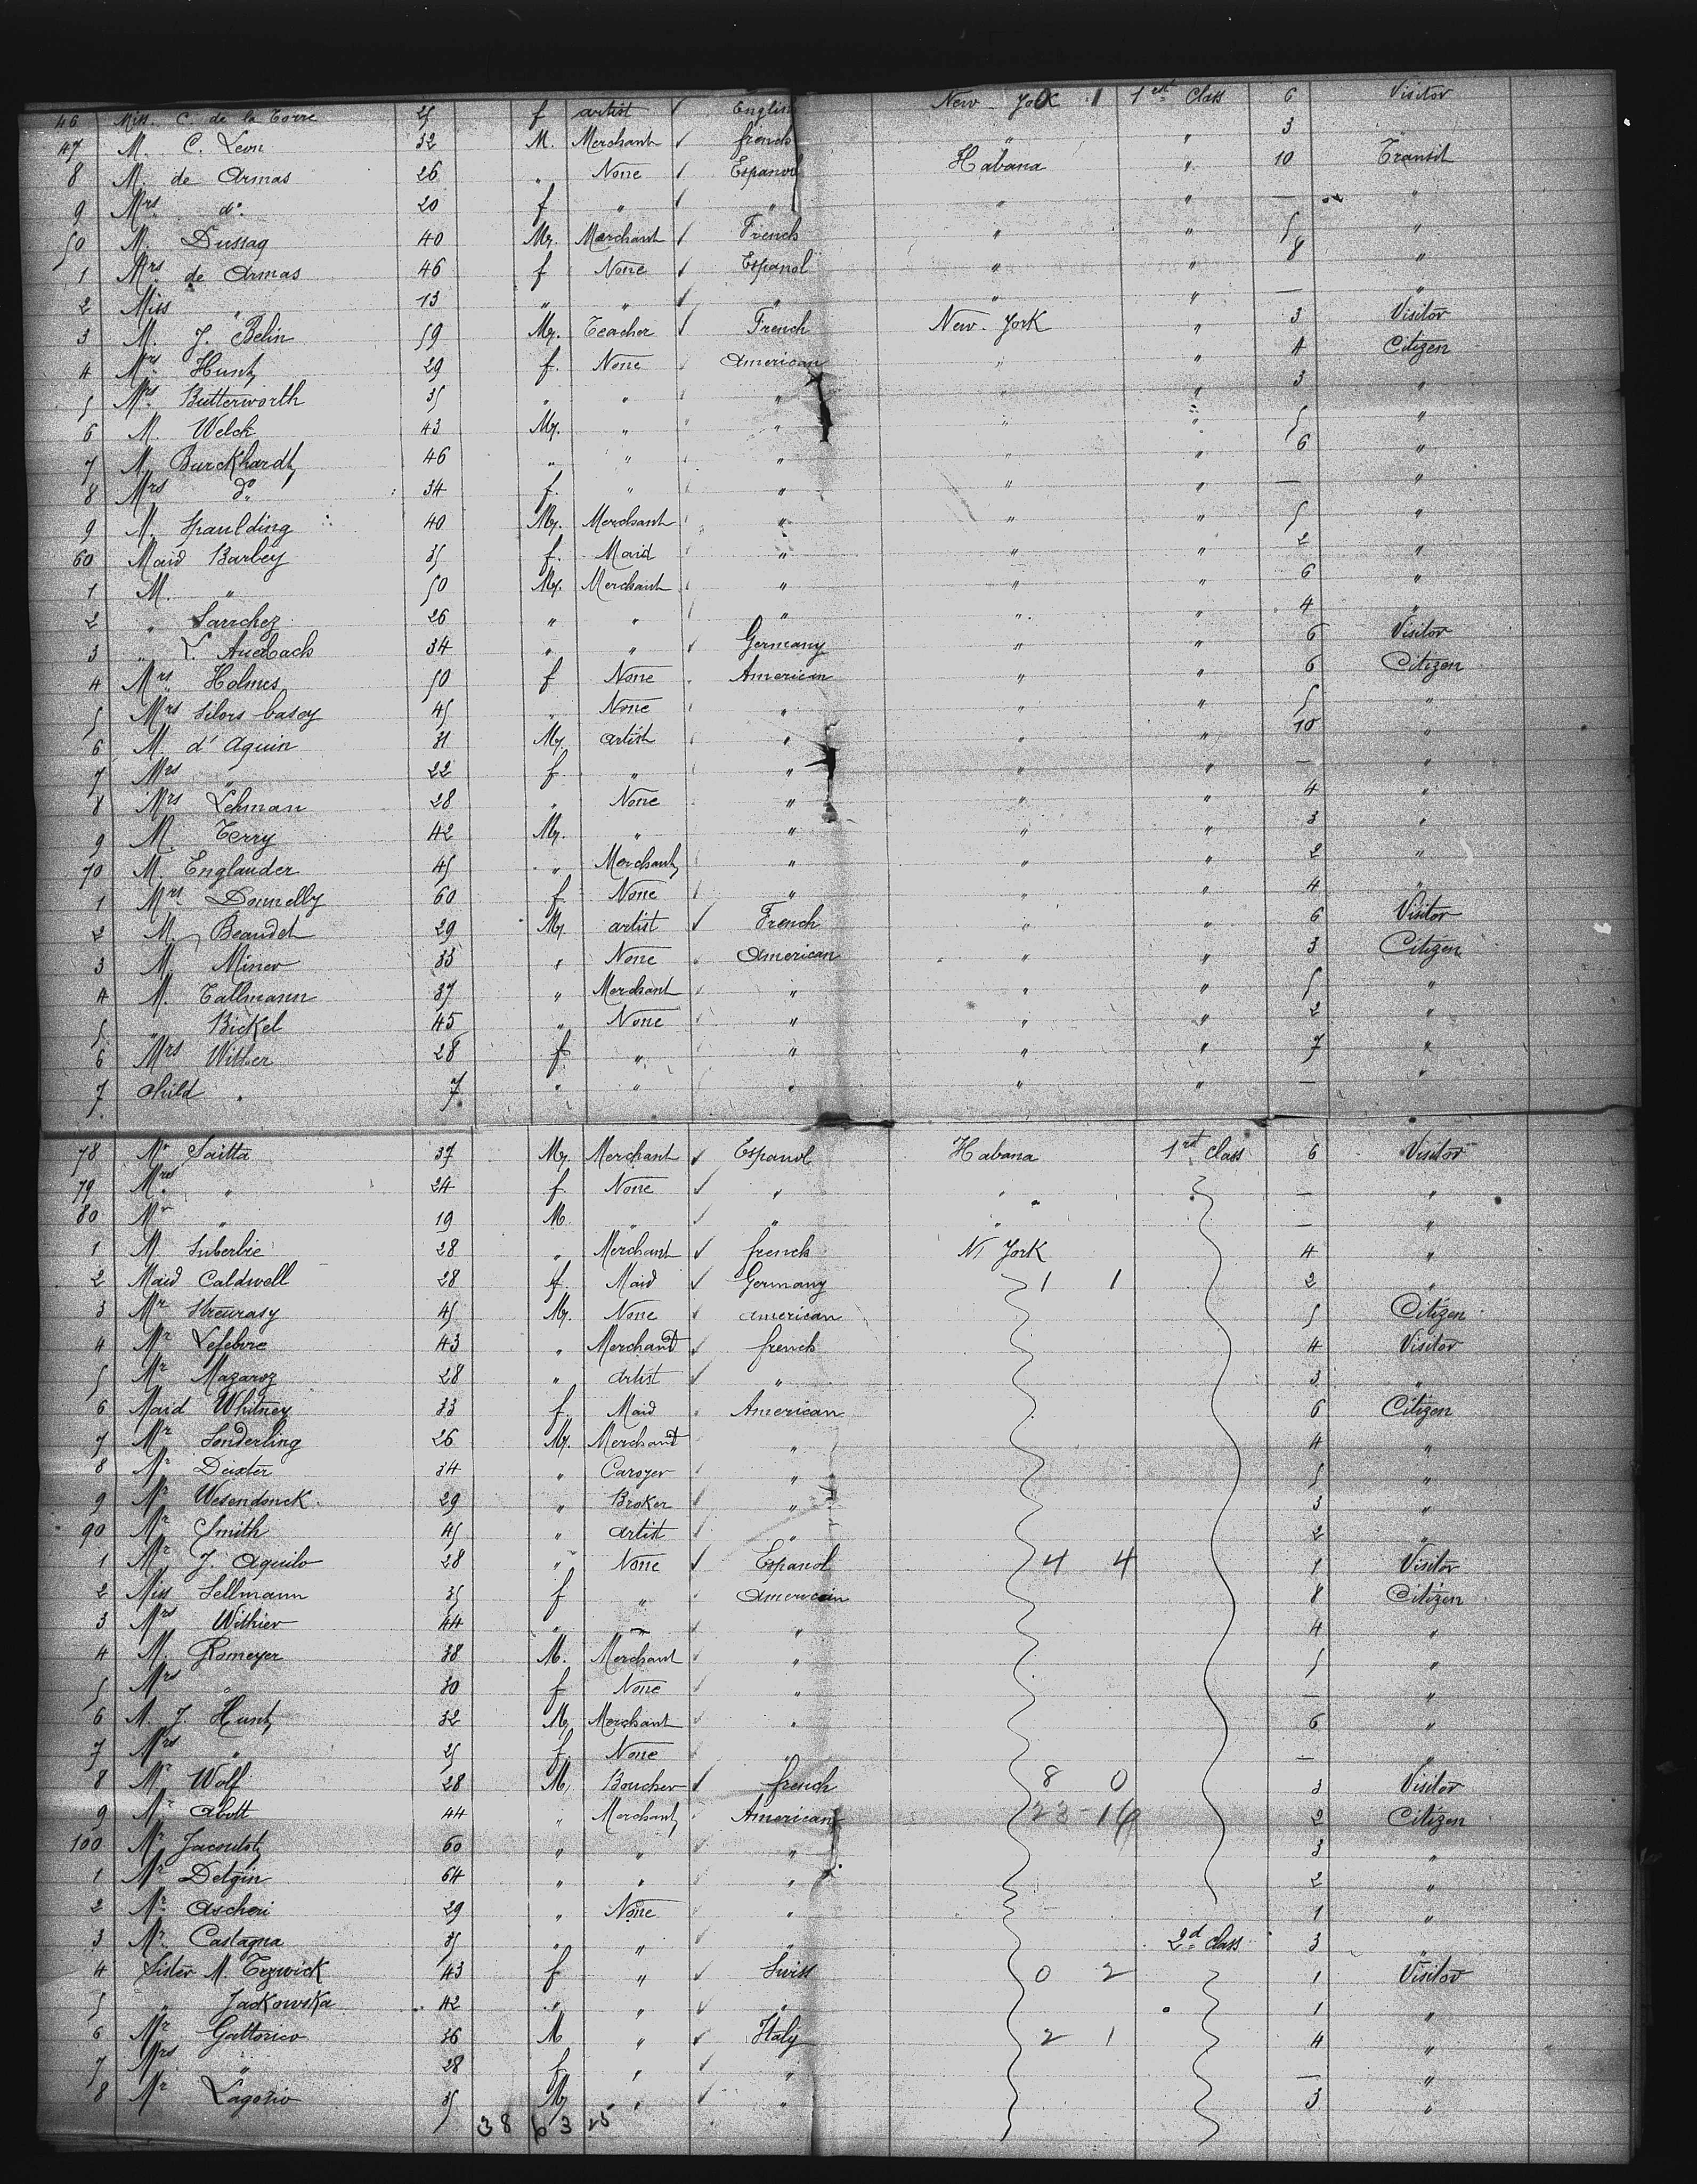 46 Miss. C. de la Torre 25 f artist ✓ English New York 1 1st Class 6 Visitor
47 M. C. Leon 32 M. Merchant ✓ french " " 3
8 M. de Armas 26 " None ✓ Espanol Habana " 10 Transit
9 Mrs do. 20 f " ✓ " " " — "
50 M. Dussaq 40 M. Merchant ✓ French " " 5 "
1 Mrs de Armas 46 f None ✓ Espanol " " 8 "
2 Miss " 13 " " ✓ " " " — "
3 M. J. Belin 59 M. Teacher ✓ French New-York " 3 Visitor
4 Mrs Hunt 29 f. None American " " 4 Citizen
5 Mrs Butterworth 35 " " " " " 3 "
6 M. Welch 43 M. " " " " 5 "
7 M. Burckhardt 46 " " " " " 6 "
8 Mrs do. 34 f. " " " " — "
9 M. Spaulding 40 M. Merchant " " " 5 "
60 Maid Barbey 35 f. Maid " " " 2 "
1 M. " 50 M. Merchant " " " 6 "
2 " Sanchez 26 " " " " " 4 "
3 " L. Auerbach 34 " " ✓ Germany " " 6 Visitor
4 Mrs Holmes 50 f None American " " 6 Citizen
5 Mrs Casey 45 " None " " " 5 "
6 M. d'Aquin 31 M. artist " " " 10 "
7 Mrs " 22 f " " " " — "
8 Mrs Lehman 28 " None " " " 4 "
9 M. Terry 42 M. " " " " 3 "
70 M. Englander 45 " Merchant " " " 2 "
1 Mrs Donnelly 60 f None " " " 4 "
2 M. Beaudet 29 M. artist ✓ French " " 6 Visitor
3 M. Miner 33 " None American " " 3 Citizen
4 M. Tallmann 37 " Merchant " " " 5 "
5 " Bickel 45 " None " " " 2 "
6 Mrs Wither 28 f " " " " 7 "
7 child " 7 " " " " " — "
78 Mr Saitta 37 M. Merchant ✓ Espanol Habana 1rst Class 6 Visitor
79 Mrs " 24 f None ✓ " " — "
80 Mr " 19 M " ✓ " " — "
1 M. Suberbie 28 " Merchant ✓ french N. York 4 "
2 Maid Caldwell 28 f. Maid ✓ Germany 1 1 2 "
3 Mr 45 M. None american 5 Citizen
4 Mr Lefebvre 43 " Merchant ✓ french 4 Visitor
5 Mr Mazaroz 28 " artist ✓ " 3 "
6 Maid Whitney 33 f Maid American 6 Citizen
7 Mr Sonderling 26 M. Merchant " 4 "
8 Mr Deixter 34 " " 5 "
9 Mr Wesendonck 29 " Broker " 3 "
90 Mr Smith 45 " artist " 2 "
1 Mr J. Aquilo 28 " None ✓ Espanol 4 4 1 Visitor
2 Miss Sellmann 35 f " American 8 Citizen
3 Mrs Withier 44 " " " 4 "
4 M. Romeyer 38 M. Merchant " 5 "
5 Mrs " 30 f None " — "
6 M. J. Hunt 32 M. Merchant " 6 "
7 Mrs " 25 f. None " — "
8 Mr Wolf 28 M. Boucher ✓ french 8 0 3 Visitor
9 Mr Abott 44 " Merchant American 23-16 2 Citizen
100 Mr Jacoutot 60 " " " 3 "
1 Mr Detgin 64 " " " 2 "
2 Mr Ascheri 29 " None " 1 "
3 Mr Castagna 35 " " " 2d Class 3 "
4 Sister M. Tezwick 43 f " ✓ Swiss 0 2 1 Visitor
5 " Jackowska 42 " " ✓ " 1 "
6 Mr Gattorico 36 M " ✓ Italy 2 1 4 "
7 Mrs " 28 f " ✓ " — "
8 Mr Lagorio 35 M. " ✓ " 3 "
38 63 25